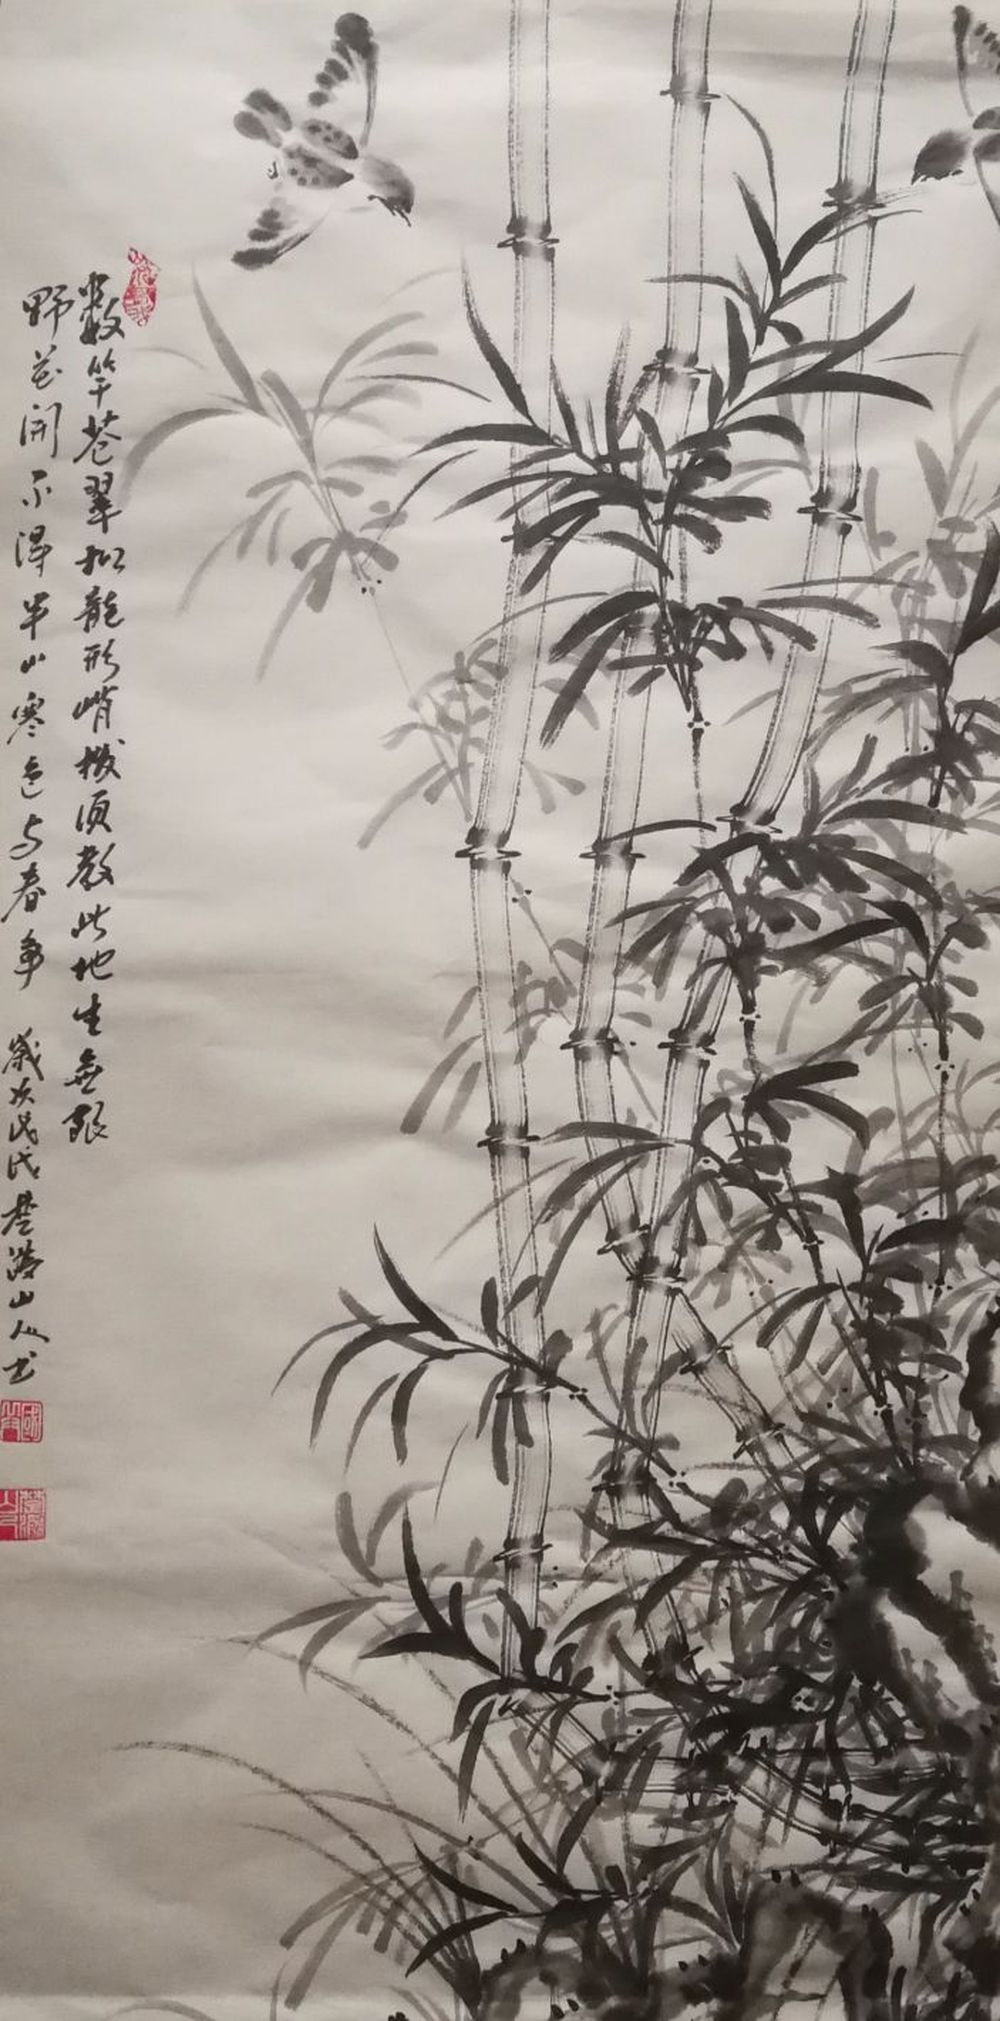 数竿苍翠拟龙形峭拔须教此地生无限
野花开不得半山寒色与春争 岁次戊戌楚涛山人书